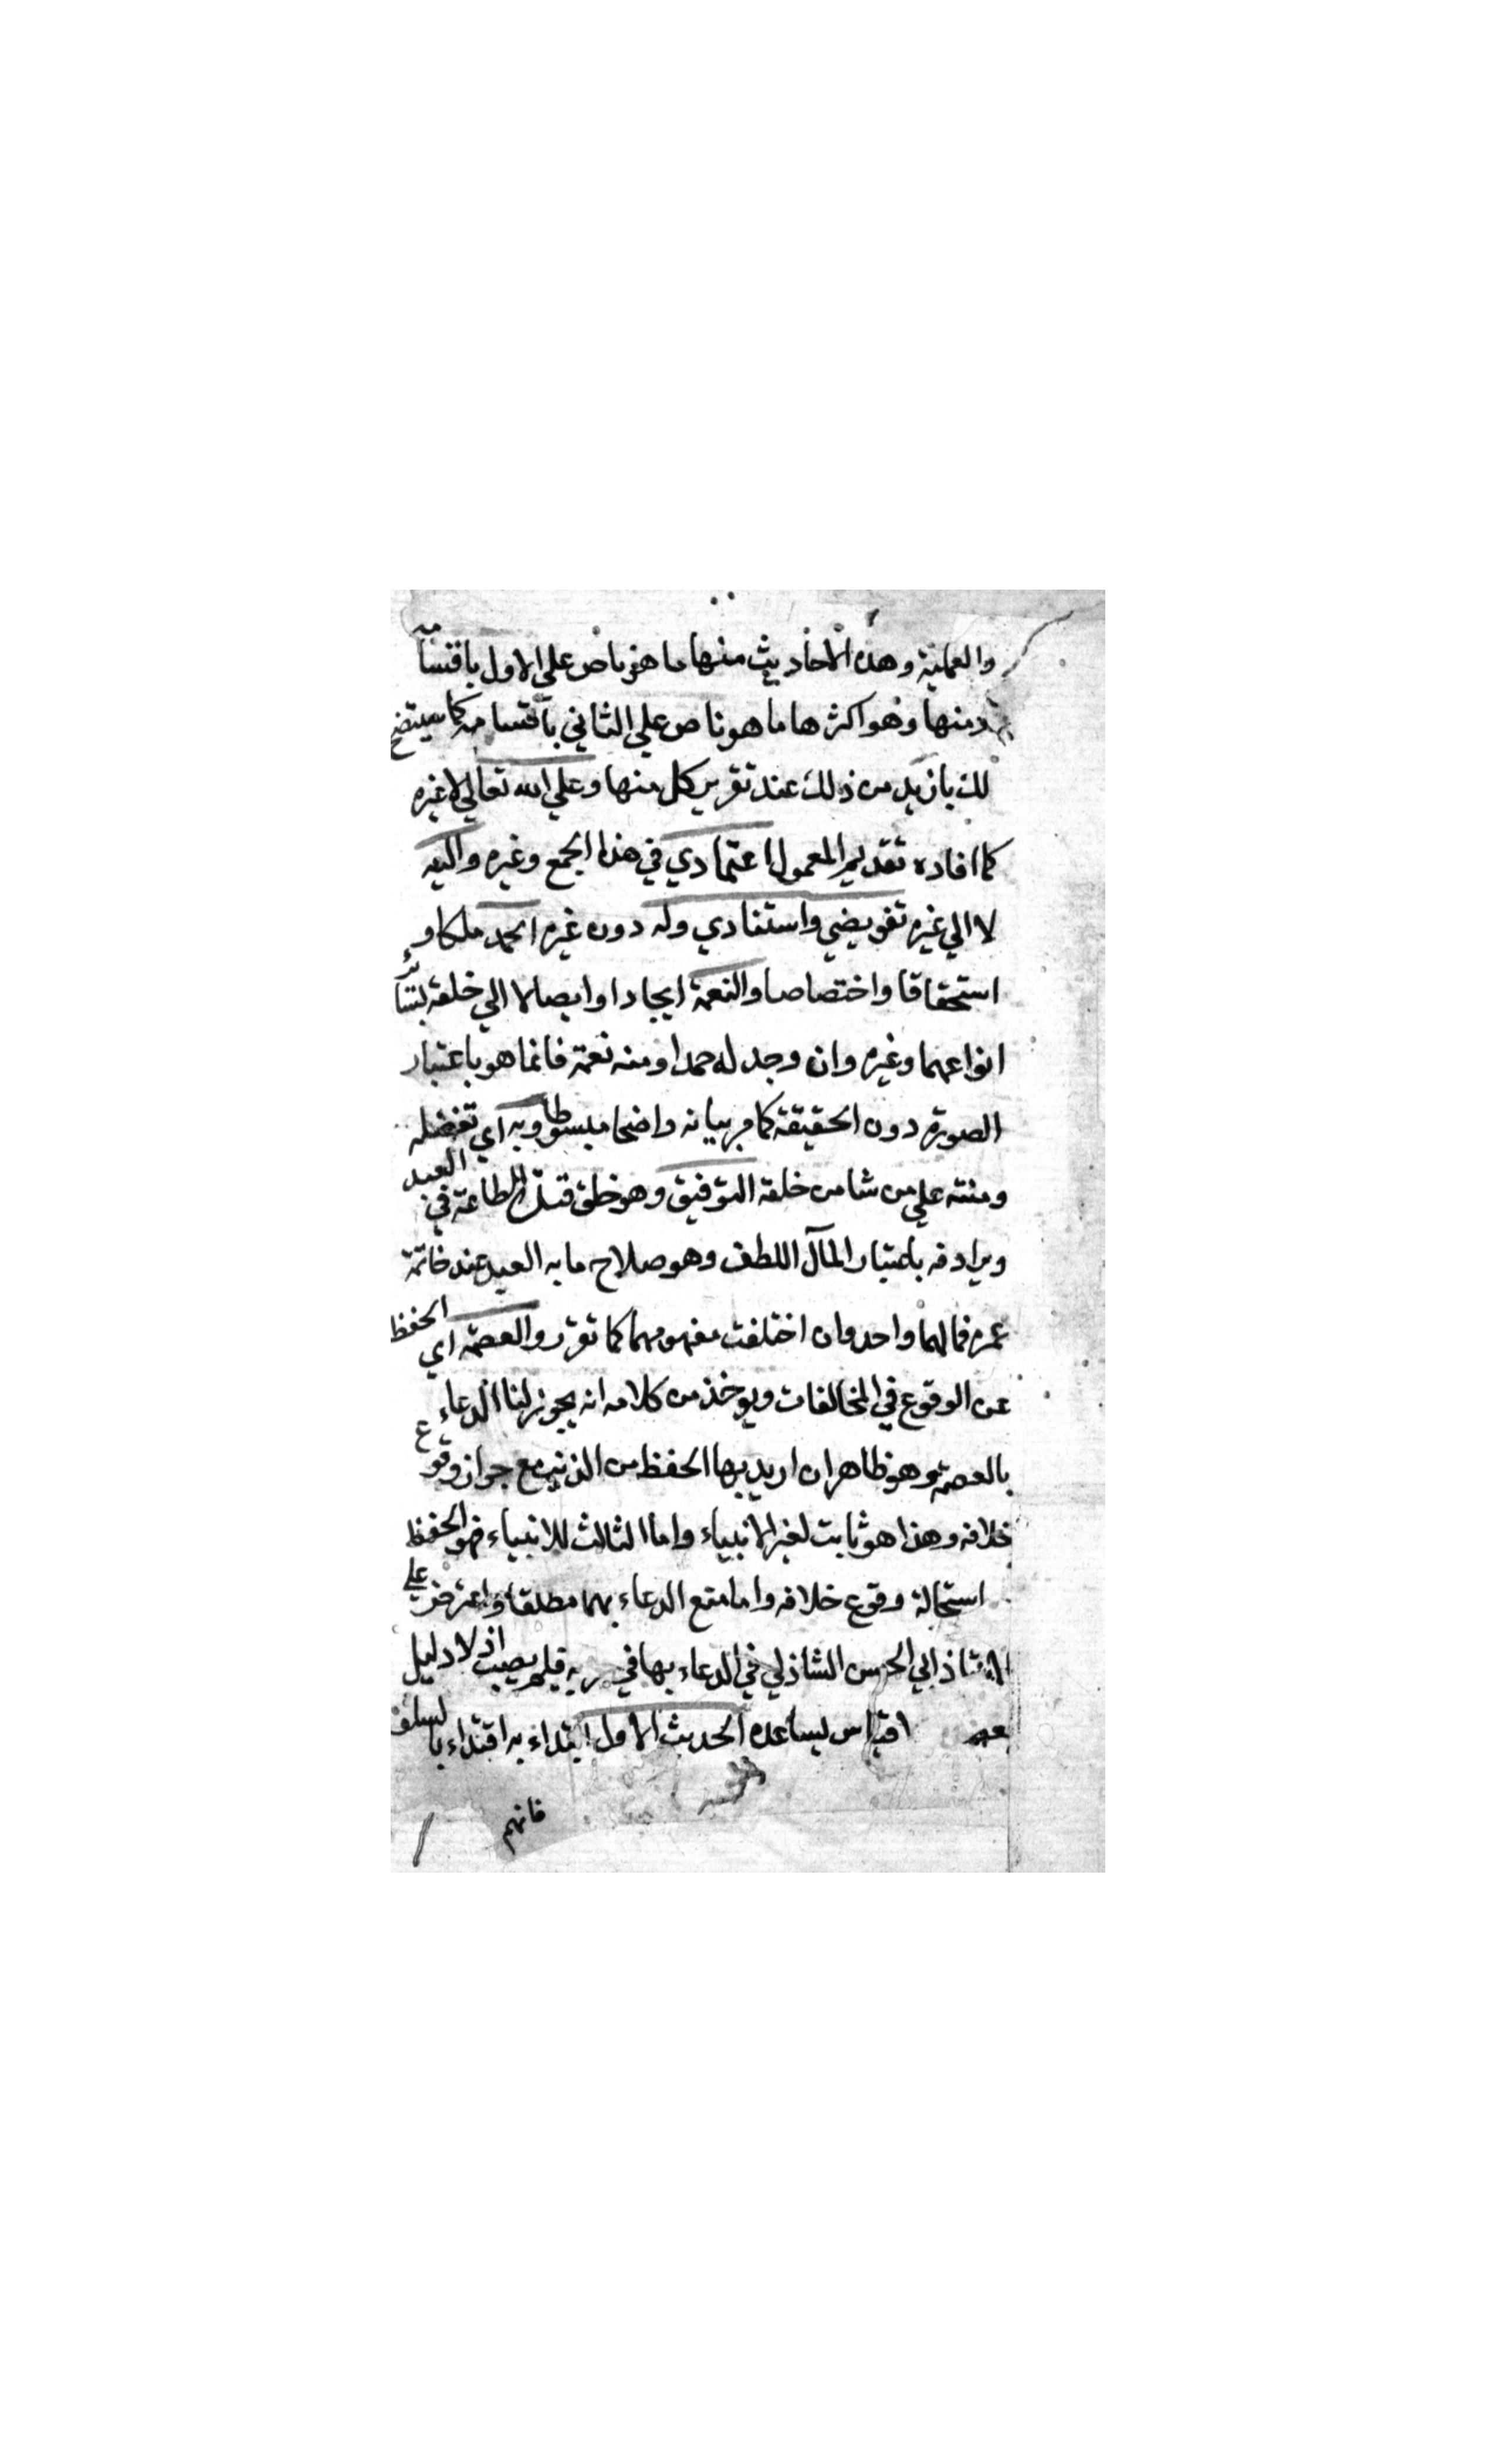 والعملية وهذه الاحاديث منها ما هو ناص علي الاول باقسامه
ومنها وهو اكثرها ما هو ناص علي الثاني باقسامه كما سيتضح
لك بازيد من ذلك عند تقرير كل منها وعلي الله تعالي لا غيره
كما افاده تقديم المعمول اعتمادي في هذا الجمع وغيره واليه
لا الي غيره تفويضي واستنادي وله دون غيره الحمد ملكا و
استحقاقا واختصاصا والنعمة ايجادا وايصالا الي خلقه بسائر
انواعهما وغيره وان وجد له حمد او منه نعمة فانما هو باعتبار
الصورة دون الحقيقة كما مر بيانه واضحا مبسوطا وبه اي تفضله
ومنته علي من شا من خلقه التوفيق وهو خلق الطاعة في العبد
ويرادفه باعتبار المآل اللطف وهو صلاح ما به العبد عند خاتمة
عمره فمالهما واحد وان اختلفت مفهومهما كما تقرر والعصمة اي الحفظ
عن الوقوع في المخالفات ويوخذ من كلامه انه يجوز لنا الدعاء
بالعصمة وهو ظاهر ان اريد بها الحفظ من الذنب مع جواز وقوع
خلافه وهذا هو ثابت لغير الانبياء واما الثالث للانبياء فهو الحفظ
استحالة وقوع خلافه واما منع الدعاء بهما مطلقا واعترض علي
الاستاذ ابي الحسن الشاذلي في الدعاء بها في فلم يصب اذ لا دليل
ليساعده الحديث الاول ابتداء به اقتداء بالسلف
فانهم